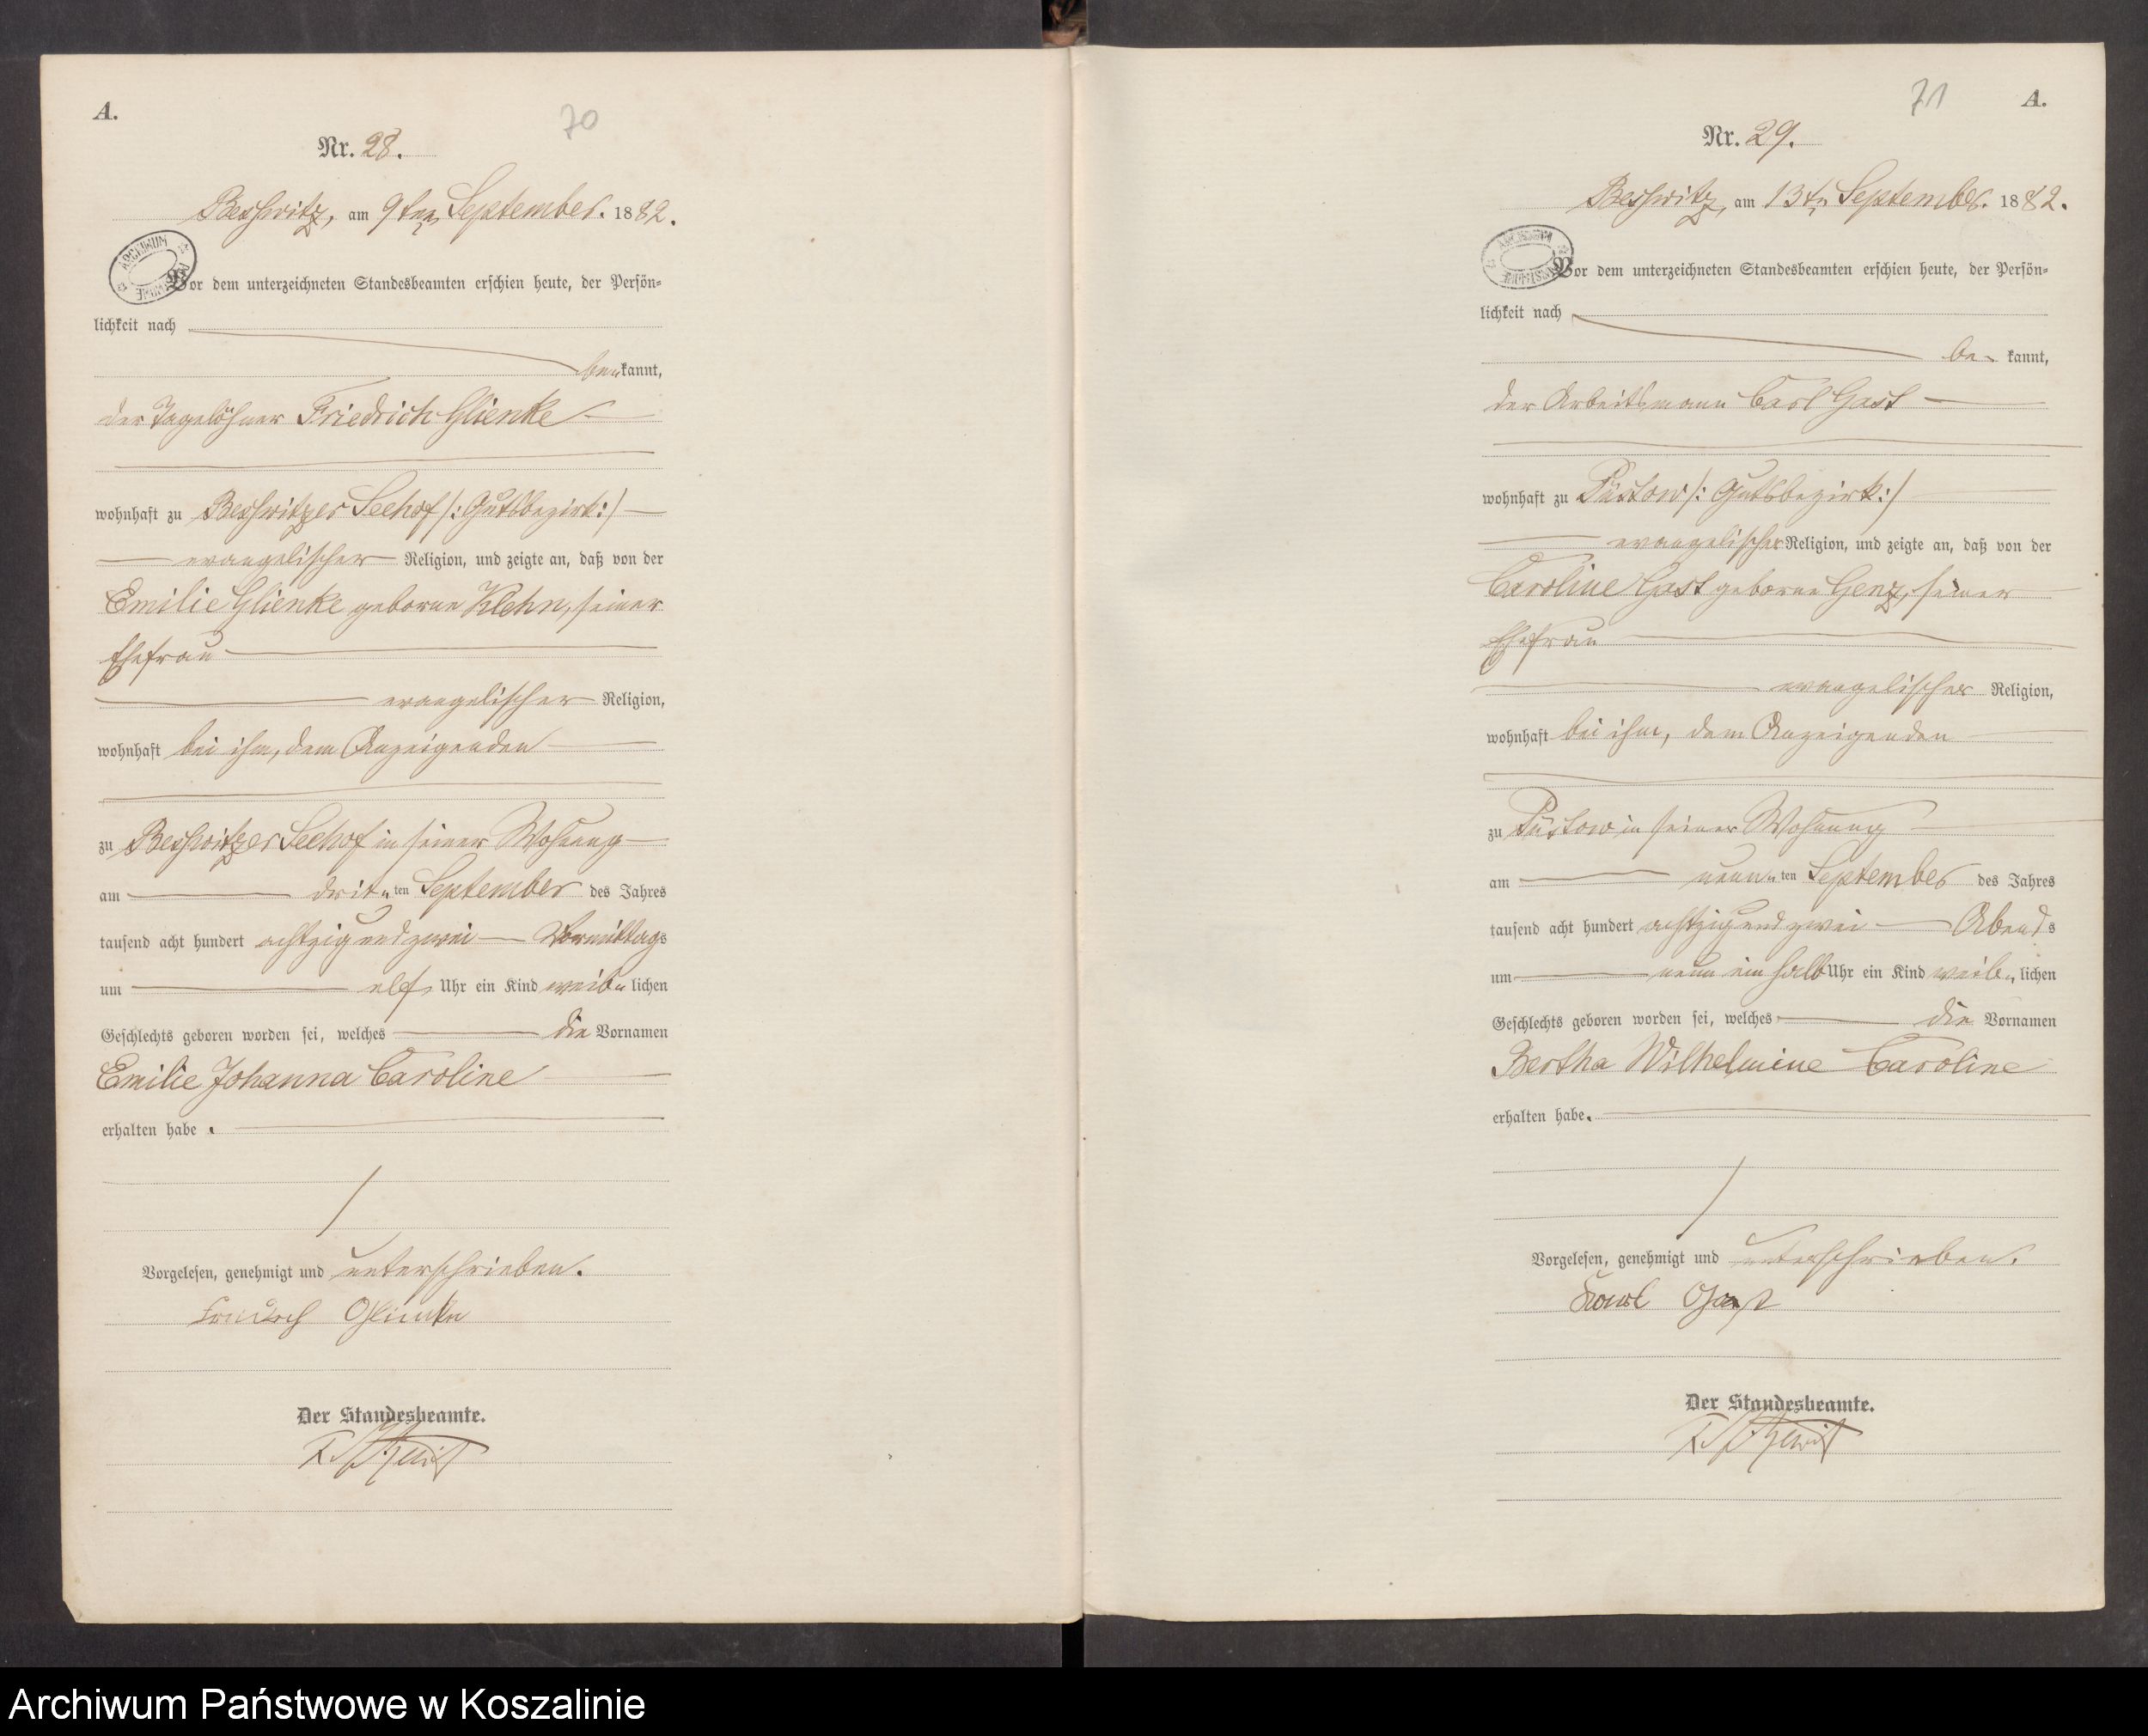 A.
70
Nr. 28.
Beßwitz, am 9ten September. 1882.
ARCHIWUM
Vor dem unterzeichneten Standesbeamten erschien heute, der Persön=
lichkeit nach
be= kannt,
der Tagelöhner Friedrich Glienke
wohnhaft zu Beßwitzer Seehof /: Gutsbezirk :/
evangelischer Religion, und zeigte an, daß von der
Emilie Glienke geborne Klehn, seiner
Ehefrau
evangelischer Religion,
wohnhaft bei ihm, dem Anzeigenden
zu Beßwitzer Seehof in seiner Wohnung
am drit= ten September des Jahres
tausend acht hundert achtzig und zwei Vormittags
um elf Uhr ein Kind weib= lichen
Geschlechts geboren worden sei, welches die Vornamen
Emilie Johanna Caroline
erhalten habe.
Vorgelesen, genehmigt und unterschrieben.
Friedrich Glienke
Der Standesbeamte.
71
A.
Nr. 29.
Beßwitz, am 13tn September. 1882.
ARCHIWUM
Vor dem unterzeichneten Standesbeamten erschien heute, der Persön=
lichkeit nach
be= kannt,
der Arbeitsmann Carl Gast
wohnhaft zu Püstow /: Gutsbezirk :/
evangelischer Religion, und zeigte an, daß von der
Caroline Gast geborne Genz, seiner
Ehefrau
evangelischer Religion,
wohnhaft bei ihm, dem Anzeigenden
zu Püstow in seiner Wohnung
am neun= ten September des Jahres
tausend acht hundert achtzig und zwei Abends
um neun ein halb Uhr ein Kind weib= lichen
Geschlechts geboren worden sei, welches die Vornamen
Bertha Wilhelmine Caroline
erhalten habe.
Vorgelesen, genehmigt und unterschrieben.
Karl Gast
Der Standesbeamte.
Archiwum Państwowe w Koszalinie